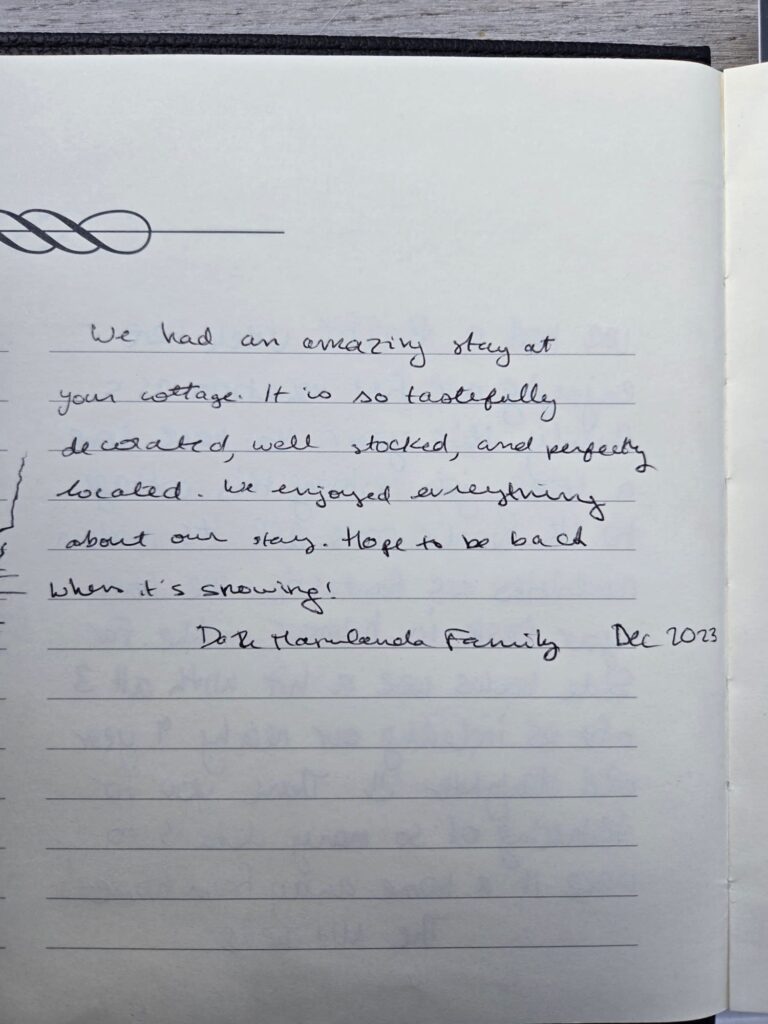 We had an amazing stay at
your cottage. It is so tastefully
decorated, well stocked, and perfectly
located. We enjoyed everything
about our stay. Hope to be back
when it's snowing!
Marulanda Family Dec 2023